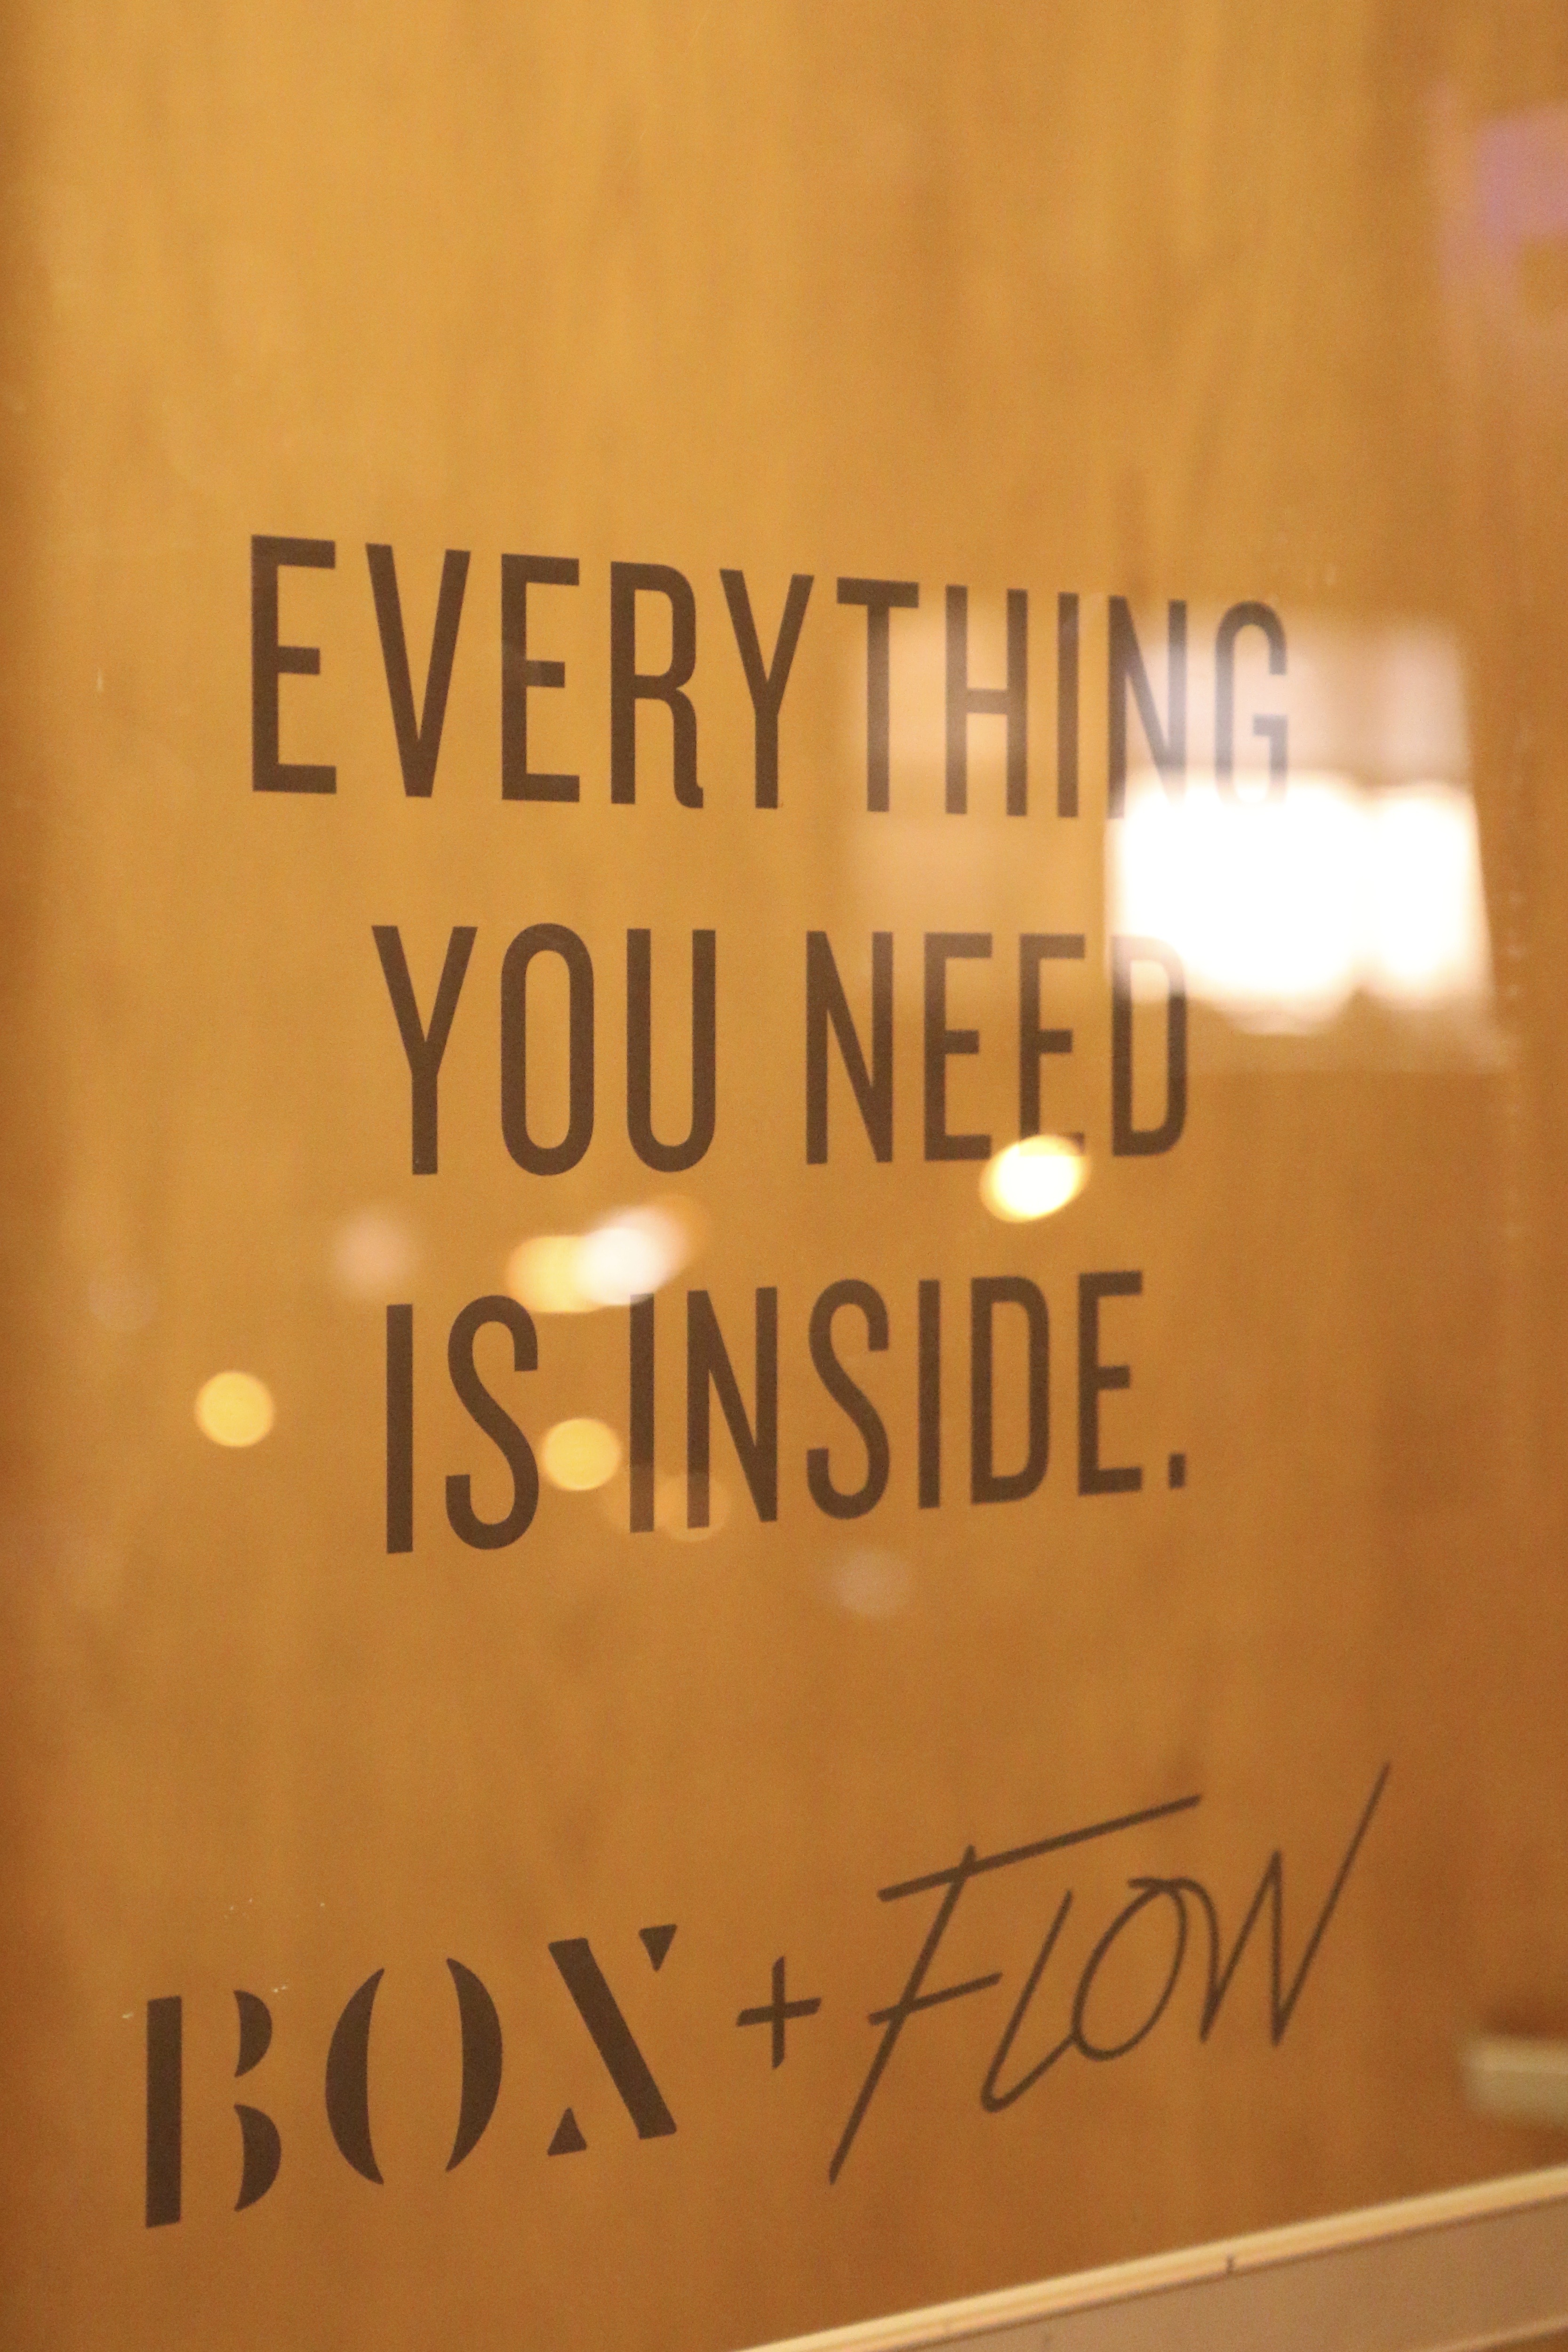 EVERYTHING
YOU NEED
IS INSIDE.
BOX + FLOW